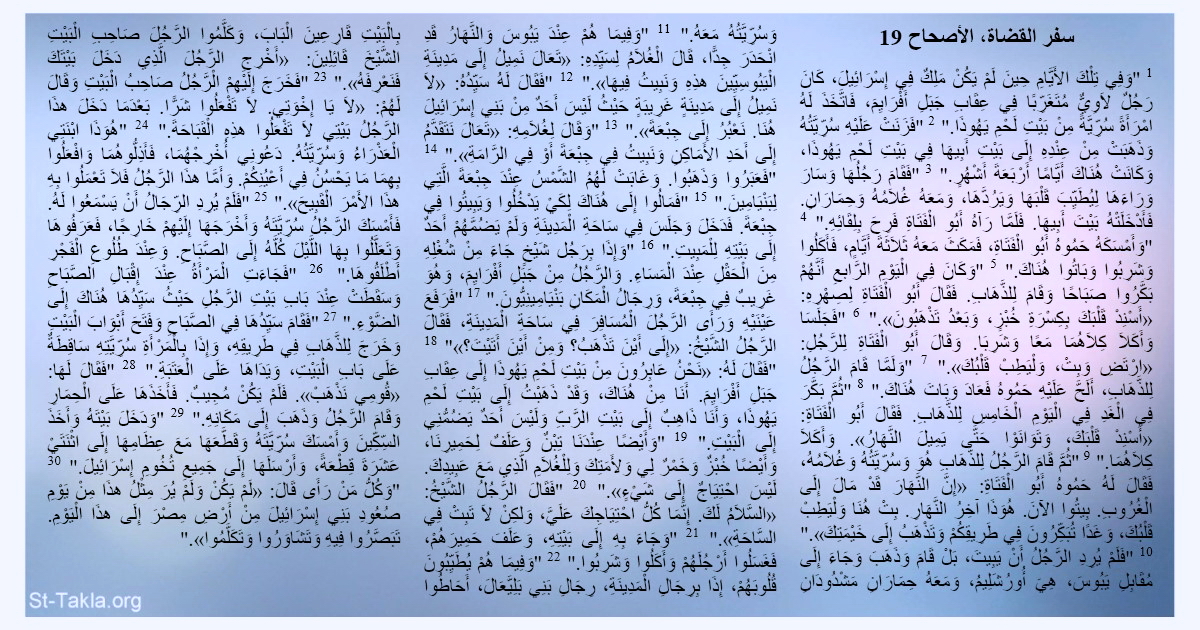 سفر القضاة، الأصحاح 19
1 "وَفِي تِلْكَ الأَيَّامِ حِينَ لَمْ يَكُنْ مَلِكٌ فِي إِسْرَائِيلَ، كَانَ
رَجُلٌ لاَوِيٌّ مُتَغَرِّبًا فِي عِقَابِ جَبَلِ أَفْرَايِمَ، فَاتَّخَذَ لَهُ
امْرَأَةً سُرِّيَّةً مِنْ بَيْتِ لَحْمِ يَهُوذَا." 2 "فَزَنَتْ عَلَيْهِ سُرِّيَّتُهُ
وَذَهَبَتْ مِنْ عِنْدِهِ إِلَى بَيْتِ أَبِيهَا فِي بَيْتِ لَحْمِ يَهُوذَا،
وَكَانَتْ هُنَاكَ أَيَّامًا أَرْبَعَةَ أَشْهُرٍ." 3 "فَقَامَ رَجُلُهَا وَسَارَ
وَرَاءَهَا لِيُطَيِّبَ قَلْبَهَا وَيَرُدَّهَا، وَمَعَهُ غُلاَمُهُ وَحِمَارَانِ.
فَأَدْخَلَتْهُ بَيْتَ أَبِيهَا. فَلَمَّا رَآهُ أَبُو الْفَتَاةِ فَرِحَ بِلِقَائِهِ." 4
"وَأَمْسَكَهُ حَمُوهُ أَبُو الْفَتَاةِ، فَمَكَثَ مَعَهُ ثَلاَثَةَ أَيَّامٍ، فَأَكَلُوا
وَشَرِبُوا وَبَاتُوا هُنَاكَ." 5 "وَكَانَ فِي الْيَوْمِ الرَّابعِ أَنَّهُمْ
بَكَّرُوا صَبَاحًا وَقَامَ لِلذَّهَابِ. فَقَالَ أَبُو الْفَتَاةِ لِصِهْرِهِ:
«أَسْنِدْ قَلْبَكَ بِكِسْرَةِ خُبْزٍ، وَبَعْدُ تَذْهَبُونَ»." 6 "فَجَلَسَا
وَأَكَلاَ كِلاَهُمَا مَعًا وَشَرِبَا. وَقَالَ أَبُو الْفَتَاةِ لِلرَّجُلِ:
«ارْتَضِ وَبِتْ، وَلْيَطِبْ قَلْبُكَ»." 7 "وَلَمَّا قَامَ الرَّجُلُ
لِلذَّهَابِ، أَلَحَّ عَلَيْهِ حَمُوهُ فَعَادَ وَبَاتَ هُنَاكَ." 8 "ثُمَّ بَكَّرَ
فِي الْغَدِ فِي الْيَوْمِ الْخَامِسِ لِلذَّهَابِ. فَقَالَ أَبُو الْفَتَاةِ:
«أَسْنِدْ قَلْبَكَ، وَتَوَانَوْا حَتَّى يَمِيلَ النَّهَارُ». وَأَكَلاَ
كِلاَهُمَا." 9 "ثُمَّ قَامَ الرَّجُلُ لِلذَّهَابِ هُوَ وَسُرِّيَّتُهُ وَغُلاَمُهُ،
فَقَالَ لَهُ حَمُوهُ أَبُو الْفَتَاةِ: «إِنَّ النَّهَارَ قَدْ مَالَ إِلَى
الْغُرُوبِ. بِيتُوا الآنَ. هُوَذَا آخِرُ النَّهَارِ. بِتْ هُنَا وَلْيَطِبْ
قَلْبُكَ، وَغَدًا تُبَكِّرُونَ فِي طَرِيقِكُمْ وَتَذْهَبُ إِلَى خَيْمَتِكَ»."
10 "فَلَمْ يُرِدِ الرَّجُلُ أَنْ يَبِيتَ، بَلْ قَامَ وَذَهَبَ وَجَاءَ إِلَى
مُقَابِلِ يَبُوسَ، هِيَ أُورُشَلِيمُ، وَمَعَهُ حِمَارَانِ مَشْدُودَانِ
وَسُرِّيَّتُهُ مَعَهُ." 11 "وَفِيمَا هُمْ عِنْدَ يَبُوسَ وَالنَّهَارُ قَدِ
انْحَدَرَ جِدًّا، قَالَ الْغُلاَمُ لِسَيِّدِهِ: «تَعَالَ نَمِيلُ إِلَى مَدِينَةِ
الْيَبُوسِيِّينَ هذِهِ وَنَبِيتُ فِيهَا»." 12 "فَقَالَ لَهُ سَيِّدُهُ: «لاَ
نَمِيلُ إِلَى مَدِينَةٍ غَرِيبَةٍ حَيْثُ لَيْسَ أَحَدٌ مِنْ بَنِي إِسْرَائِيلَ
هُنَا. نَعْبُرُ إِلَى جِبْعَةَ»." 13 "وَقَالَ لِغُلاَمِهِ: «تَعَالَ نَتَقَدَّمُ
إِلَى أَحَدِ الأَمَاكِنِ وَنَبِيتُ فِي جِبْعَةَ أَوْ فِي الرَّامَةِ»." 14
"فَعَبَرُوا وَذَهَبُوا. وَغَابَتْ لَهُمُ الشَّمْسُ عِنْدَ جِبْعَةَ الَّتِي
لِبَنْيَامِينَ." 15 "فَمَالُوا إِلَى هُنَاكَ لِكَيْ يَدْخُلُوا وَيَبِيتُوا فِي
جِبْعَةَ. فَدَخَلَ وَجَلَسَ فِي سَاحَةِ الْمَدِينَةِ وَلَمْ يَضُمَّهُمْ أَحَدٌ
إِلَى بَيْتِهِ لِلْمَبِيتِ." 16 "وَإِذَا بِرَجُل شَيْخٍ جَاءَ مِنْ شُغْلِهِ
مِنَ الْحَقْلِ عِنْدَ الْمَسَاءِ. وَالرَّجُلُ مِنْ جَبَلِ أَفْرَايِمَ، وَهُوَ
غَرِيبٌ فِي جِبْعَةَ، وَرِجَالُ الْمَكَانِ بَنْيَامِينِيُّونَ." 17 "فَرَفَعَ
عَيْنَيْهِ وَرَأَى الرَّجُلَ الْمُسَافِرَ فِي سَاحَةِ الْمَدِينَةِ، فَقَالَ
الرَّجُلُ الشَّيْخُ: «إِلَى أَيْنَ تَذْهَبُ؟ وَمِنْ أَيْنَ أَتَيْتَ؟»" 18
"فَقَالَ لَهُ: «نَحْنُ عَابِرُونَ مِنْ بَيْتِ لَحْمِ يَهُوذَا إِلَى عِقَابِ
جَبَلِ أَفْرَايِمَ. أَنَا مِنْ هُنَاكَ، وَقَدْ ذَهَبْتُ إِلَى بَيْتِ لَحْمِ
يَهُوذَا، وَأَنَا ذَاهِبٌ إِلَى بَيْتِ الرَّبِّ وَلَيْسَ أَحَدٌ يَضُمُّنِي
إِلَى الْبَيْتِ." 19 "وَأَيْضًا عِنْدَنَا تِبْنٌ وَعَلَفٌ لِحَمِيرِنَا،
وَأَيْضًا خُبْزٌ وَخَمْرٌ لِي وَلأَمَتِكَ وَلِلْغُلاَمِ الَّذِي مَعَ عَبِيدِكَ.
لَيْسَ احْتِيَاجٌ إِلَى شَيْءٍ»." 20 "فَقَالَ الرَّجُلُ الشَّيْخُ:
«السَّلاَمُ لَكَ. إِنَّمَا كُلُّ احْتِيَاجِكَ عَلَيَّ، وَلكِنْ لاَ تَبِتْ فِي
السَّاحَةِ»." 21 "وَجَاءَ بِهِ إِلَى بَيْتِهِ، وَعَلَفَ حَمِيرَهُمْ،
فَغَسَلُوا أَرْجُلَهُمْ وَأَكَلُوا وَشَرِبُوا." 22 "وَفِيمَا هُمْ يُطَيِّبُونَ
قُلُوبَهُمْ، إِذَا بِرِجَالِ الْمَدِينَةِ، رِجَالِ بَنِي بَلِيَّعَالَ، أَحَاطُوا
بِالْبَيْتِ قَارِعِينَ الْبَابَ، وَكَلَّمُوا الرَّجُلَ صَاحِبَ الْبَيْتِ
الشَّيْخَ قَائِلِينَ: «أَخْرِجِ الرَّجُلَ الَّذِي دَخَلَ بَيْتَكَ
فَنَعْرِفَهُ»." 23 "فَخَرَجَ إِلَيْهِمُ الرَّجُلُ صَاحِبُ الْبَيْتِ وَقَالَ
لَهُمْ: «لاَ يَا إِخْوَتِي. لاَ تَفْعَلُوا شَرًّا. بَعْدَمَا دَخَلَ هذَا
الرَّجُلُ بَيْتِي لاَ تَفْعَلُوا هذِهِ الْقَبَاحَةَ." 24 "هُوَذَا ابْنَتِي
الْعَذْرَاءُ وَسُرِّيَّتُهُ. دَعُونِي أُخْرِجْهُمَا، فَأَذِلُّوهُمَا وَافْعَلُوا
بِهِمَا مَا يَحْسُنُ فِي أَعْيُنِكُمْ. وَأَمَّا هذَا الرَّجُلُ فَلاَ تَعْمَلُوا بِهِ
هذَا الأَمْرَ الْقَبِيحَ»." 25 "فَلَمْ يُرِدِ الرِّجَالُ أَنْ يَسْمَعُوا لَهُ.
فَأَمْسَكَ الرَّجُلُ سُرِّيَّتَهُ وَأَخْرَجَهَا إِلَيْهِمْ خَارِجًا، فَعَرَفُوهَا
وَتَعَلَّلُوا بِهَا اللَّيْلَ كُلَّهُ إِلَى الصَّبَاحِ. وَعِنْدَ طُلُوعِ الْفَجْرِ
أَطْلَقُوهَا." 26 "فَجَاءَتِ الْمَرْأَةُ عِنْدَ إِقْبَالِ الصَّبَاحِ
وَسَقَطَتْ عِنْدَ بَابِ بَيْتِ الرَّجُلِ حَيْثُ سَيِّدُهَا هُنَاكَ إِلَى
الضَّوْءِ." 27 "فَقَامَ سَيِّدُهَا فِي الصَّبَاحِ وَفَتَحَ أَبْوَابَ الْبَيْتِ
وَخَرَجَ لِلذَّهَابِ فِي طَرِيقِهِ، وَإِذَا بِالْمَرْأَةِ سُرِّيَّتِهِ سَاقِطَةٌ
عَلَى بَابِ الْبَيْتِ، وَيَدَاهَا عَلَى الْعَتَبَةِ." 28 "فَقَالَ لَهَا:
«قُومِي نَذْهَبْ». فَلَمْ يَكُنْ مُجِيبٌ. فَأَخَذَهَا عَلَى الْحِمَارِ
وَقَامَ الرَّجُلُ وَذَهَبَ إِلَى مَكَانِهِ." 29 "وَدَخَلَ بَيْتَهُ وَأَخَذَ
السِّكِّينَ وَأَمْسَكَ سُرِّيَّتَهُ وَقَطَّعَهَا مَعَ عِظَامِهَا إِلَى اثْنَتَيْ
عَشْرَةَ قِطْعَةً، وَأَرْسَلَهَا إِلَى جَمِيعِ تُخُومِ إِسْرَائِيلَ." 30
"وَكُلُّ مَنْ رَأَى قَالَ: «لَمْ يَكُنْ وَلَمْ يُرَ مِثْلُ هذَا مِنْ يَوْمِ
صُعُودِ بَنِي إِسْرَائِيلَ مِنْ أَرْضِ مِصْرَ إِلَى هذَا الْيَوْمِ.
تَبَصَّرُوا فِيهِ وَتَشَاوَرُوا وَتَكَلَّمُوا»."
St-Takla.org